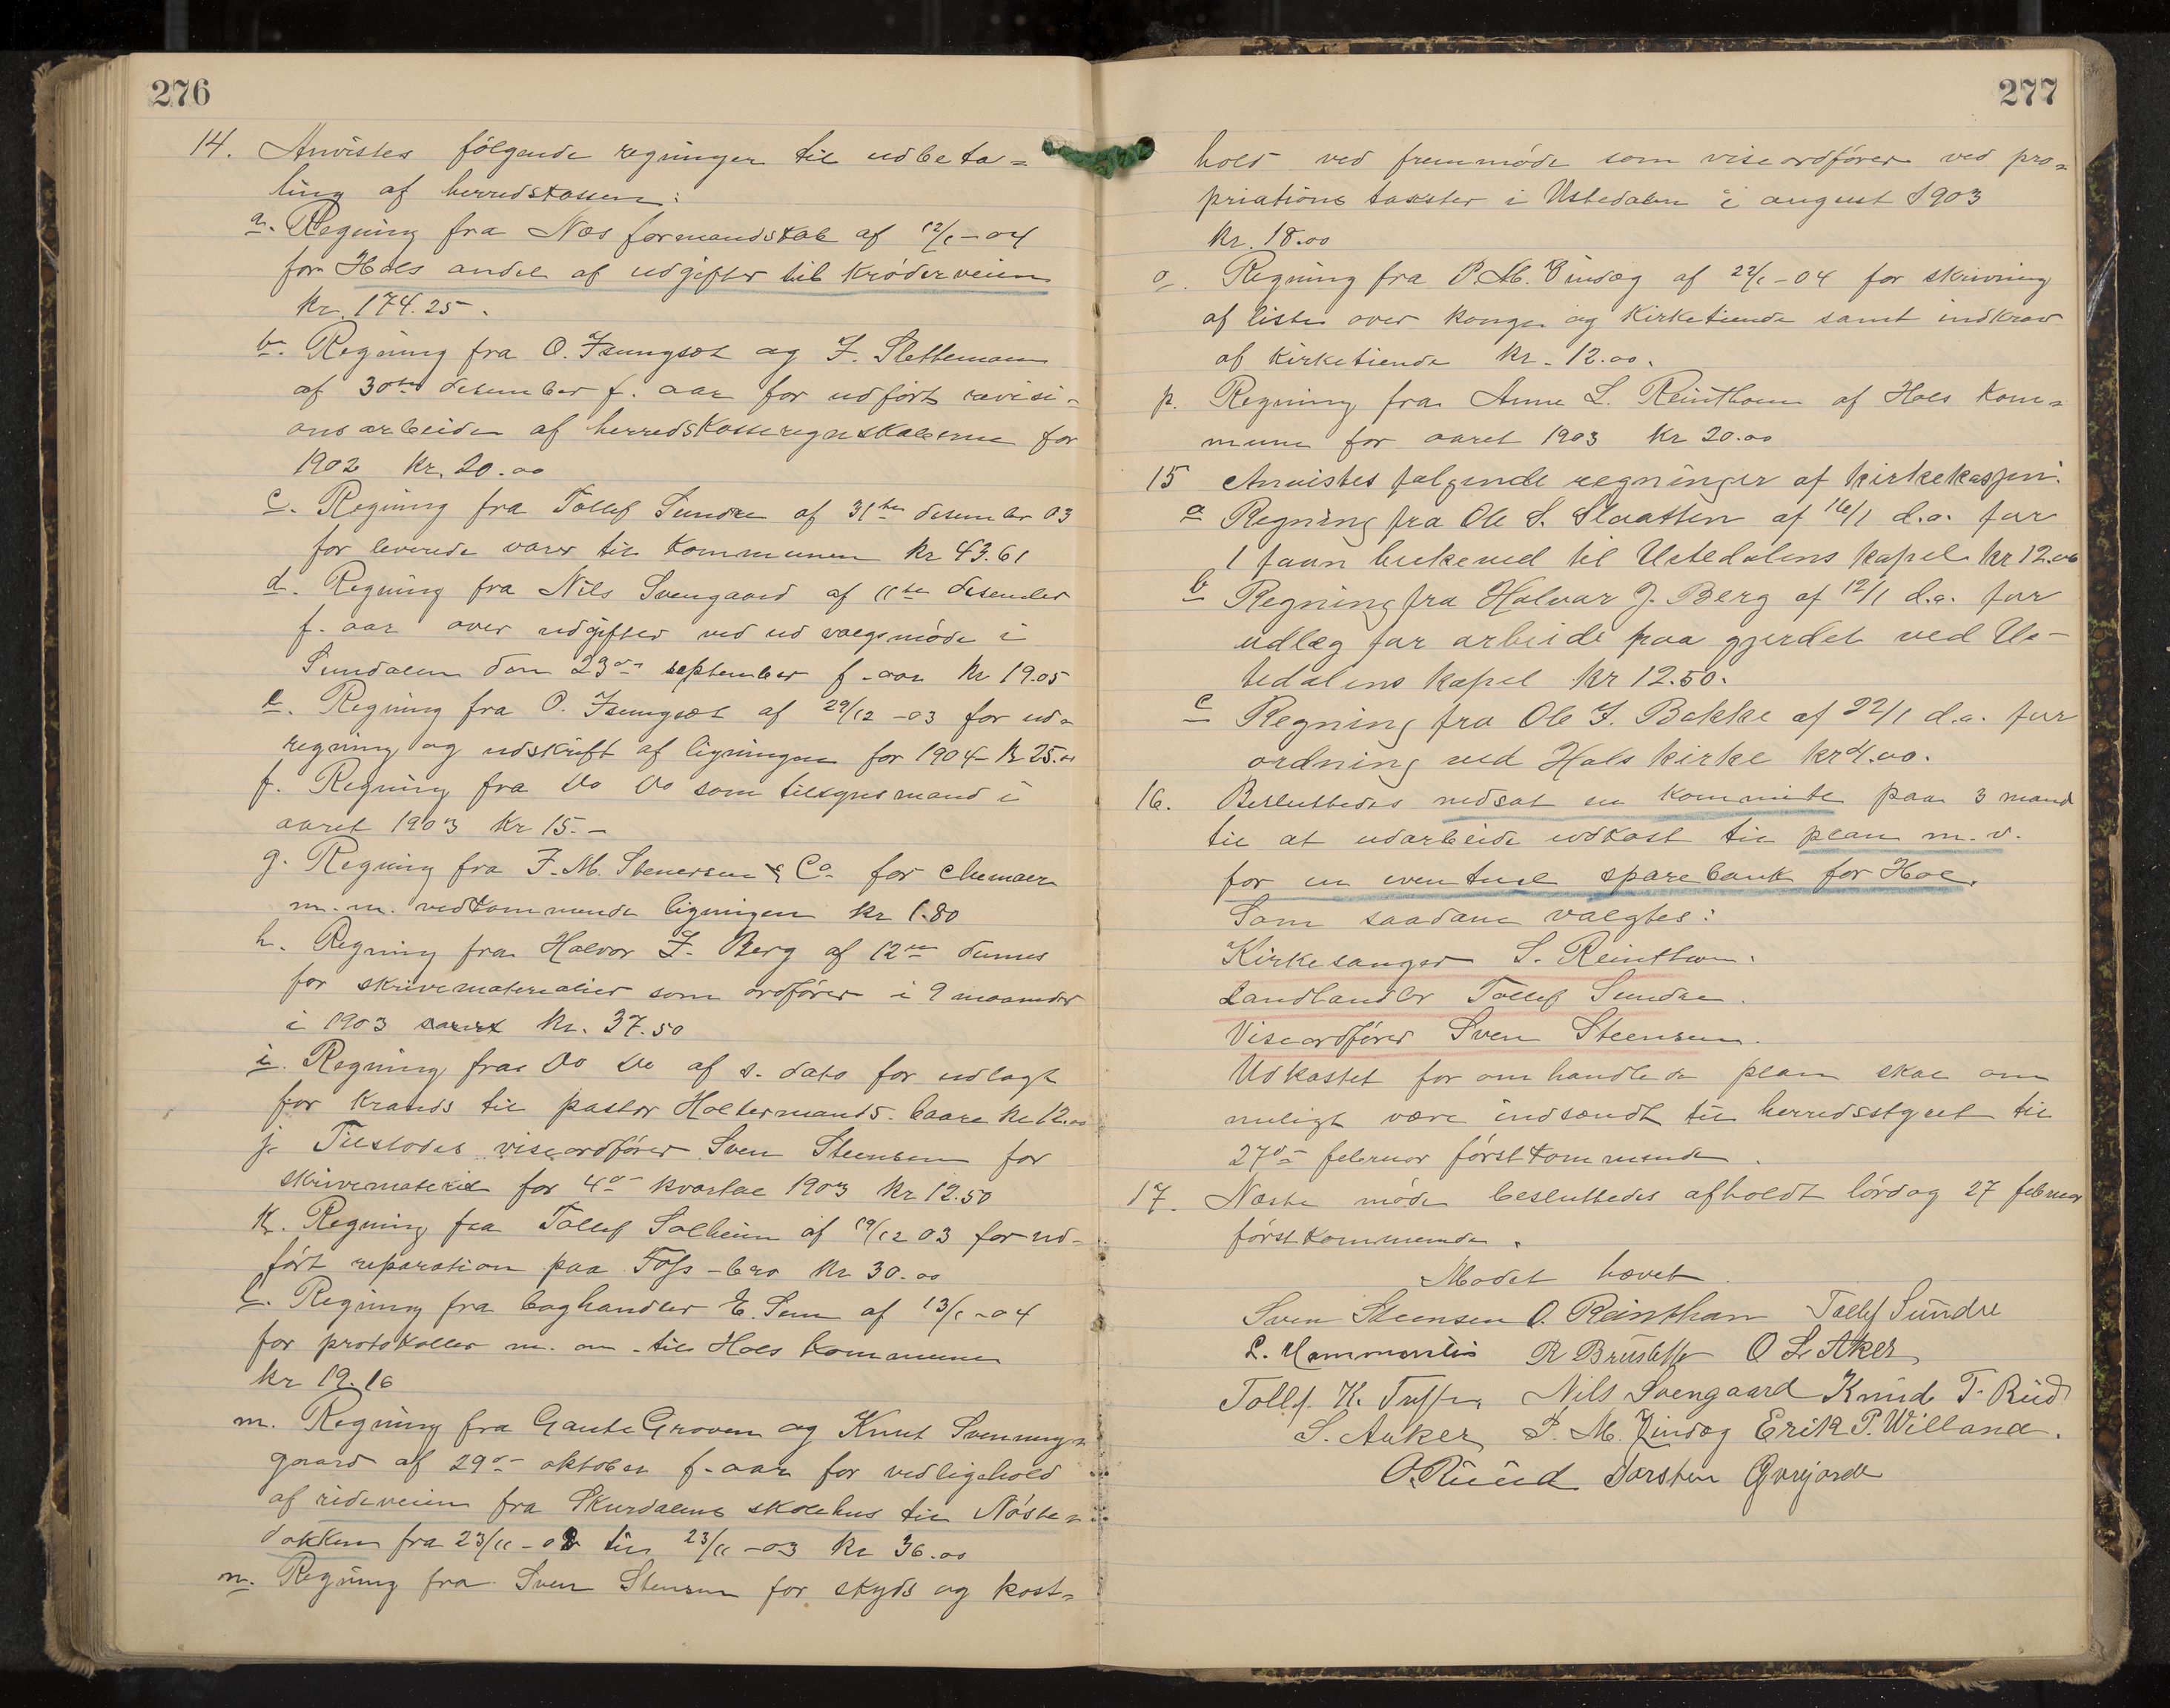 276
14. Anvistes følgende regninger til udbeta=
ling af herredskassen:
a. Regning fra Næs formandskab af 12/1-04
for Hols andel af udgifter til Krøderveien
kr. 174.25.
b. Regning fra O. og F. Slettemoen
af 30te desember f. aar for udført revisi=
ons arbeide af herredskasseregnskaberne for
1902 Kr. 20.00
c. Regning fra Tollef Sundre af 31te desember 03
for leverede varer til kommunen kr 43.61
d. Regning fra Nils Svengaard af 11te desember
f. aar over udgifter ved ud valgsmøde i
Sundalen den 23de september f-aar kr 19.05
e. Regning fra O. af 29/12-03 for ud=
regning og udskrift af ligningen for 1904- kr 25.00
f. Regning fra Do Do som tilsynsmand i
aaret 1903 Kr 15.-
g. Regning fra J. M. Stenersen & Co. for chemaer
m.m. vedkommende ligningen kr 1.80
h. Regning fra Halvor J. Berg af 12te dennes
for skrivematerialier som ordfører i 9 maaneder
i 1903 Kr. 37.50
i. Regning fra Do Do af s. dato for udlagt
for krands til pastor Holtermands baare kr 12.00
j. Tilstodes viseordfører Sven Steensen for
skrivemateriel for 4de kvartal 1903 kr 12.50
k. Regning fra Tollef Solheim af 19/12 03 for ud=
ført reparation paa Foss-bro Kr 30.00
l. Regning fra boghandler E. Sem af 13/1-04
for protokoller m. m. til Hols kommune
kr 19.16
m. Regning fra Gaute Groven og Knut Svennungs=
gaard af 29de oktober f-aar for vedligehold
af rideveien fra Skurdalens skolehus til Nøste=
dokken fra 23/11-02 til 23/11-03 kr 36.00
n. Regning fra Sven Stensen for skyds og kost=
277
hold ved fremmøde som viseordfører ved pro=
priations taxster i Ustedalen i august 1903
kr. 18.00
o. Regning fra P. M. af 22/1-04 for skrivning
af liste over konge og kirketiende samt indkrav
af kirketiende kr. 12.00.
p. Regning fra Anne L. Reinthon af Hols kom=
mune for aaret 1903 kr 20.00
15 Anvistes følgende regninger af kirkekassen:
a Regning fra Ole S. Slaatten af 16/1 d.a. for
1 favn birkeved til Ustedalens kapel kr 12.00
b Regning fra Halvar J. Berg af 12/1 d.a. for
udlæg for arbeide paa gjerdet ved Us-
tedalens kapel kr 12.50.
c Regning fra Ole J. Bakke af 22/1 d.a. for
ordning ved Hols kirke kr 4.00.
16. Besluttedes nedsat en kommite paa 3 mand
til at udarbeide udkast til plan m. v.
for en eventuel sparebank for Hol.
Som saadane valgtes:
Kirkesanger S. Reinthon.
Landhandler Tollef Sundre.
Viseordfører Sven Steensen.
Udkastet for omhandlede plan skal om
muligt være indsændt til herredsstyret til
27de februar førstkommende.
17. Næste møde besluttedes afholdt lørdag 27 februar
førstkommende.
Mødet hævet.
Sven Steensen O. Reinthon Tollef Sundre
L. R O L Aker
Tollf. K. Nils Svengaard Knud T. Rud
S. Aaker P. M. Erik P. Willand.
O. Ruud Torsten